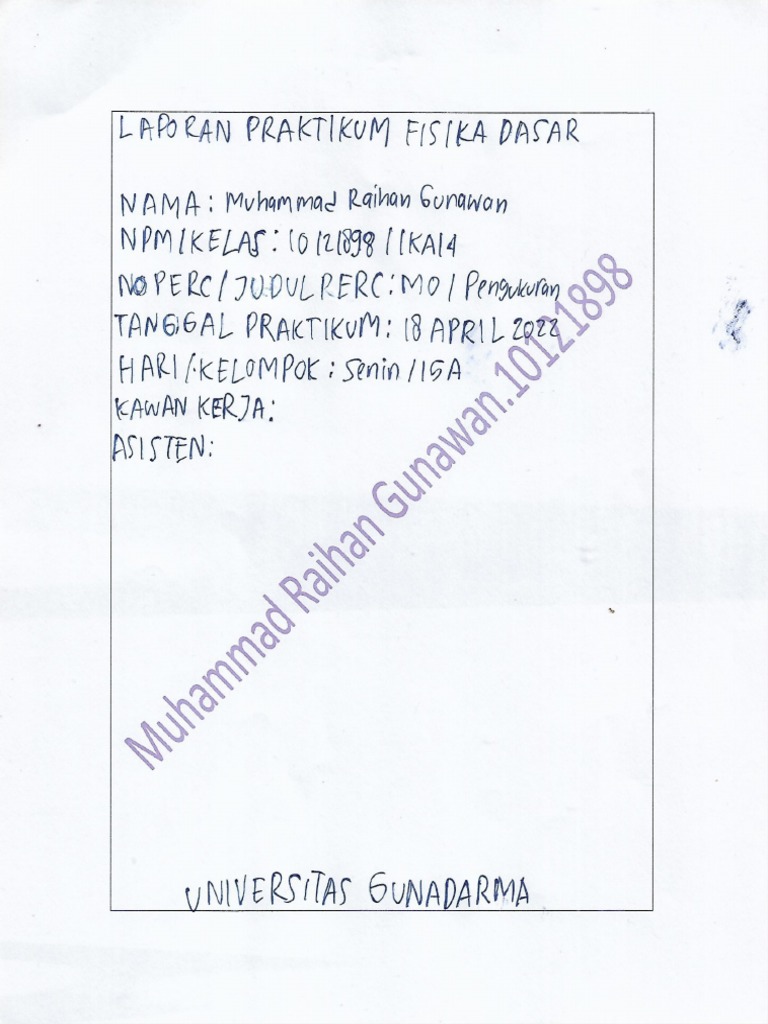 LAPORAN PRAKTIKUM FISIKA DASAR
NAMA: Muhammad Raihan Gunawan
NPM/KELAS: 10121898 / 1KA14
NO PERC/JUDUL PERC: M0 / Pengukuran
TANGGAL PRAKTIKUM: 18 APRIL 2022
HARI/KELOMPOK: Senin/15A
KAWAN KERJA:
ASISTEN:
Muhammad Raihan Gunawan.10121898
UNIVERSITAS GUNADARMA